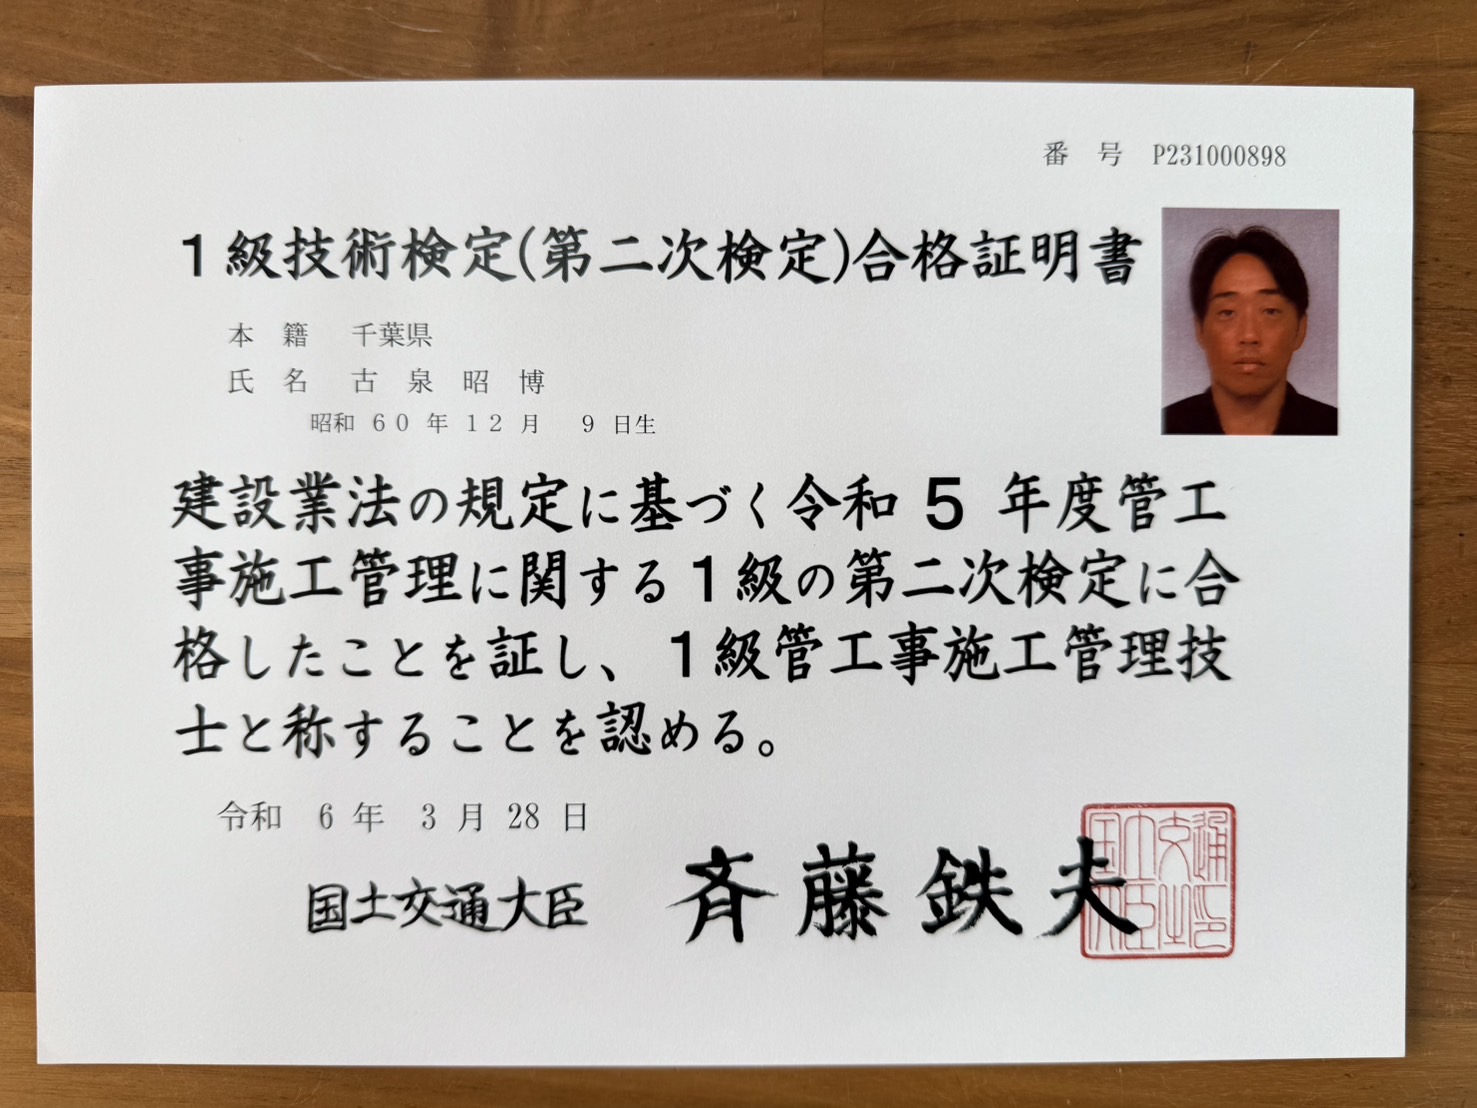 番号 P231000898
1級技術検定(第二次検定)合格証明書
本籍 千葉県
氏名 古泉昭博
昭和60年12月 9日生
建設業法の規定に基づく令和5年度管工
事施工管理に関する1級の第二次検定に合
格したことを証し、1級管工事施工管理技
士と称することを認める。
令和 6年 3月28日
国土交通大臣 斉藤鉄夫
国土交通大臣之印